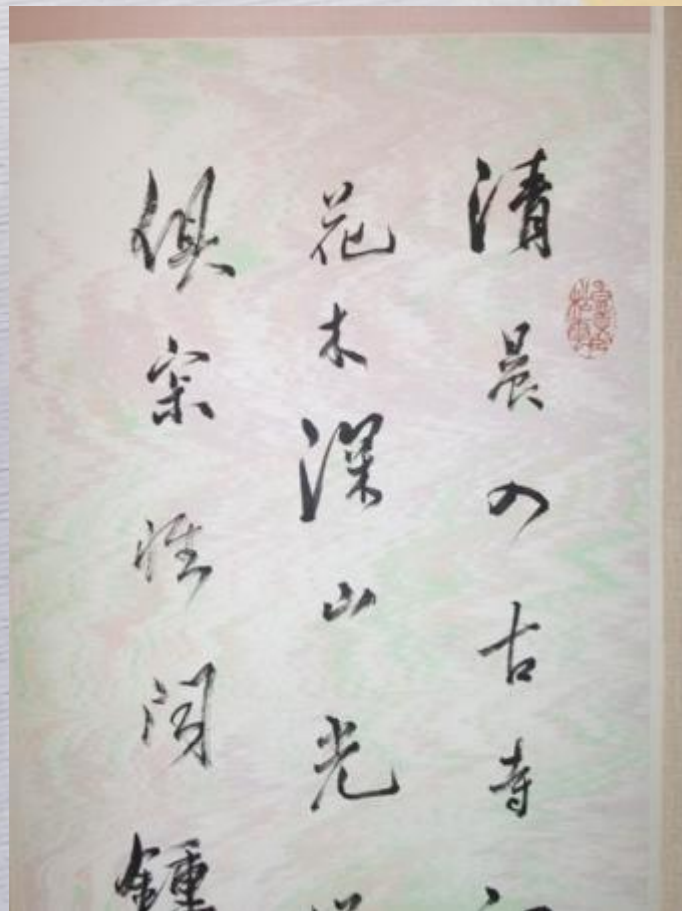 清晨入古寺初
花木深山光
俱寂惟闻鍾